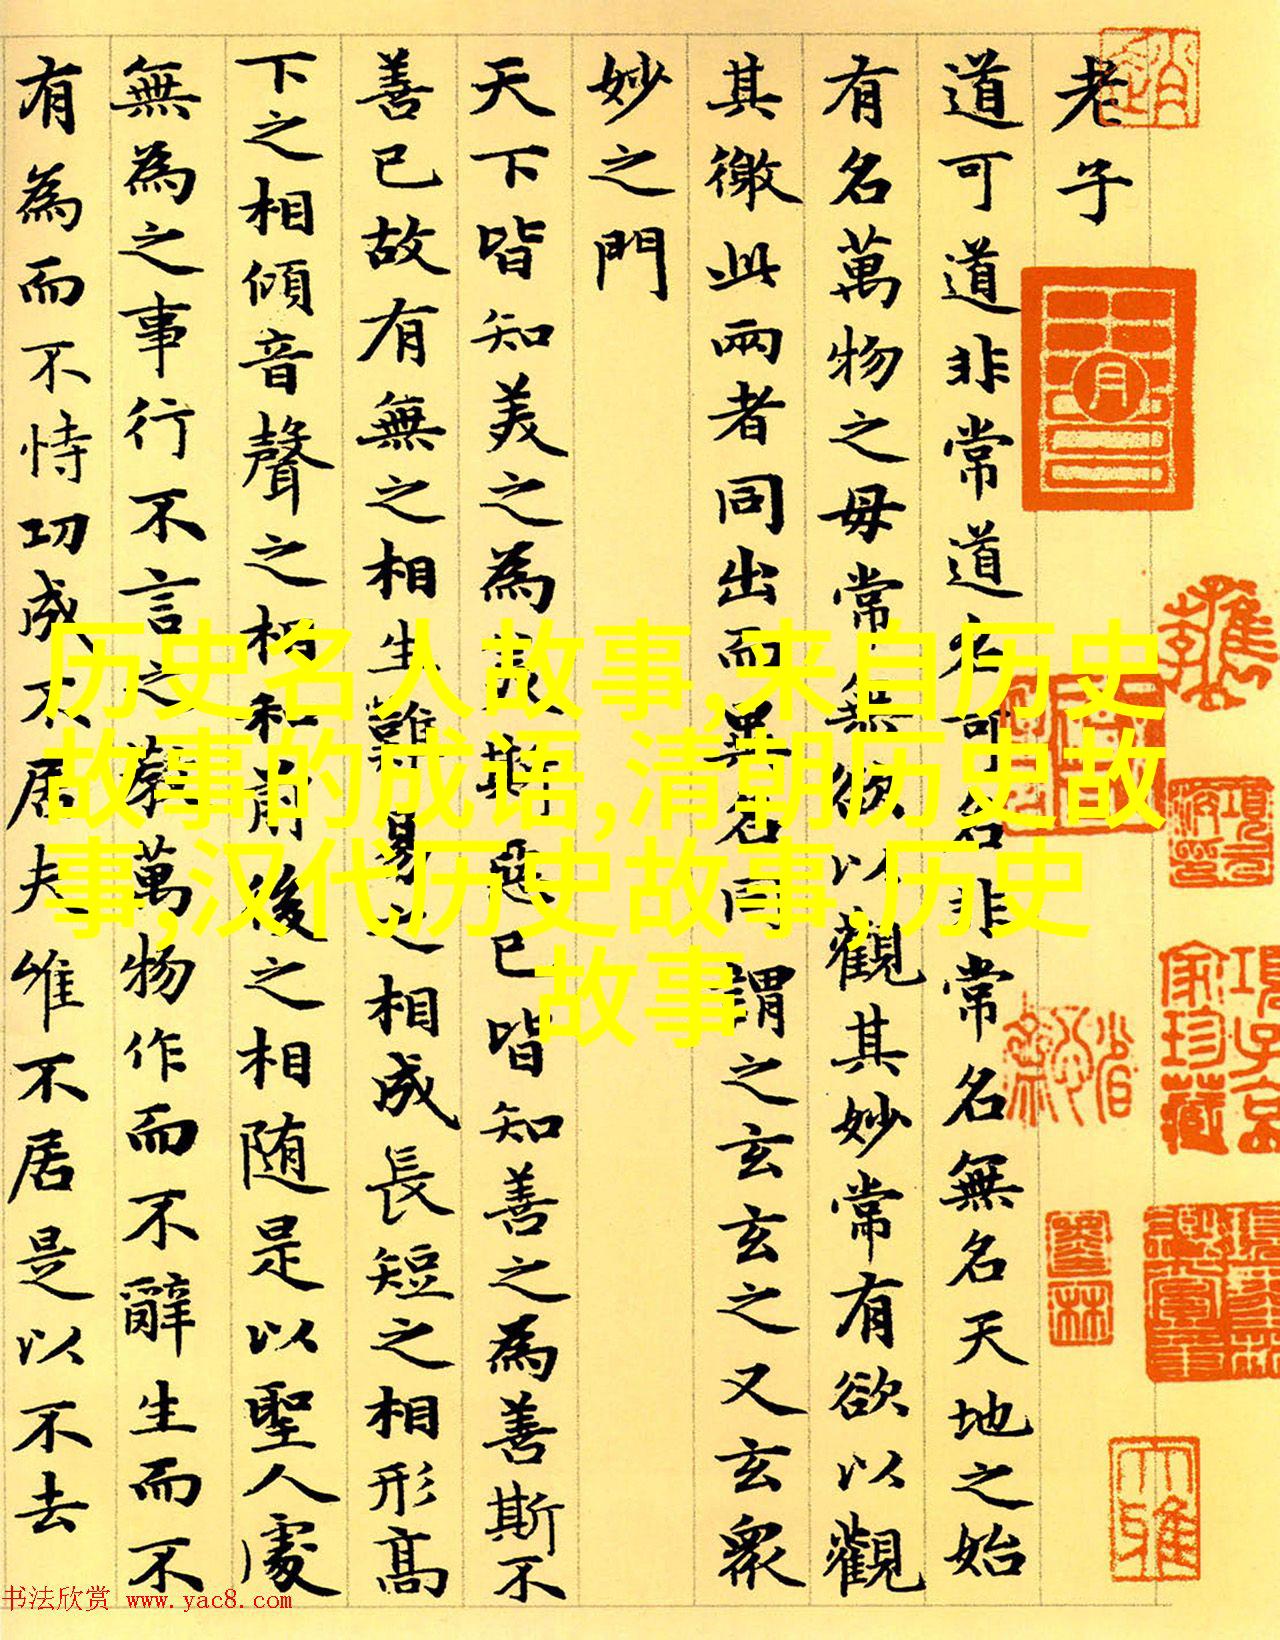 老子
道可道非常道名可名非常名無名天地之始
有名萬物之毋常無欲以觀其妙常有欲以觀
其徼此兩者同出而異名同謂之玄玄之又玄衆
妙之門
天下皆知美之為美斯惡已皆知善之為善斯不
善已故有無之相生難易之相成長短之相形髙
下之相傾音聲之相和前後之相随是以聖人處
無為之事行不言之教萬物作而不辭生而不
有為而不恃功成不居夫唯不居是以不去
历史名人故事,来自历史
故事的成语,清朝历史故
事,汉代历史故事,历史
故事
項子京家珍藏
书法欣赏 www.yac8.com